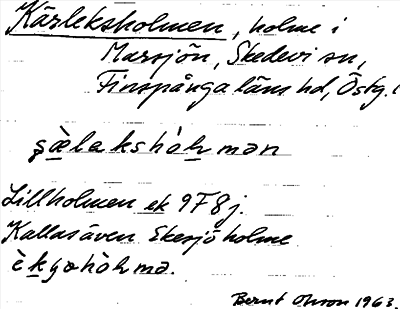 Kärleksholmen, holme i
Marsjön, Skedevi sn,
Finspånga läns hd, Östg.
s̨æ̀lakshòlmən
Lillholmen ek 9F8j.
Kallas även Ekesjöholme
Bernt Olsson 1963.